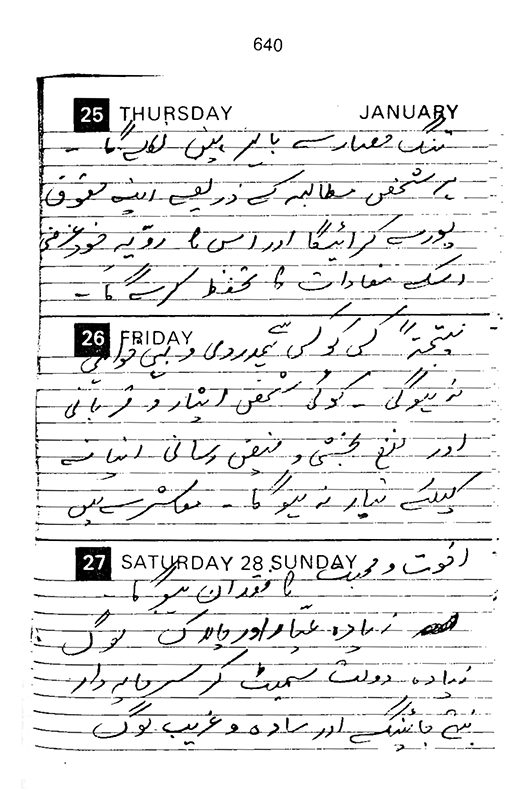 640
25 THURSDAY JANUARY
تنگ معیار سے باہر نہیں نکلے گا -
ہر شخص مطالبہ کے ذریعے اپنے حقوق
پورے کرائیگا اور اس کا رویّہ خود غرضی
اسکے مفادات کا تحفظ کرے گا -
26 FRIDAY
نتیجۃً کسی کو کسی سے ہمدردی و
نہ ہوگی - کوئی شخص ایثار و قربانی
اور نفع بخشی و فیض رسانی
کیلئے تیار نہ ہوگا - معاشرے میں
27 SATURDAY 28 SUNDAY
اخوت و محبت کا فقدان ہوگا -
زیادہ عیار اور چالاک لوگ
زیادہ دولت سمیٹ کر سرمایہ دار
بنتے جائینگے اور سادہ و غریب لوگ